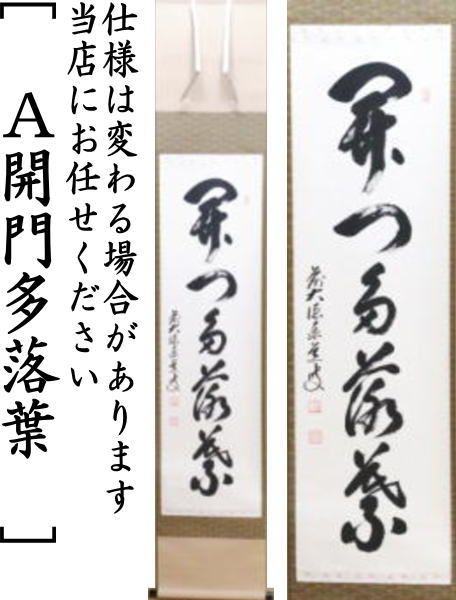 仕様は変わる場合があります
当店にお任せください
［ A開門多落葉 ］
開門多落葉
開門多落葉